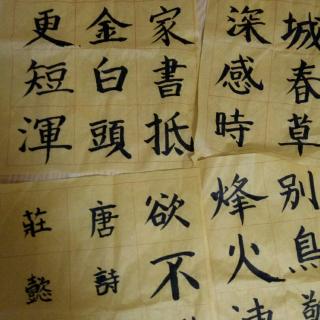 城春草
深感時
家書抵
金白頭
更短渾
別鳥
烽火
欲不
唐詩
莊懿